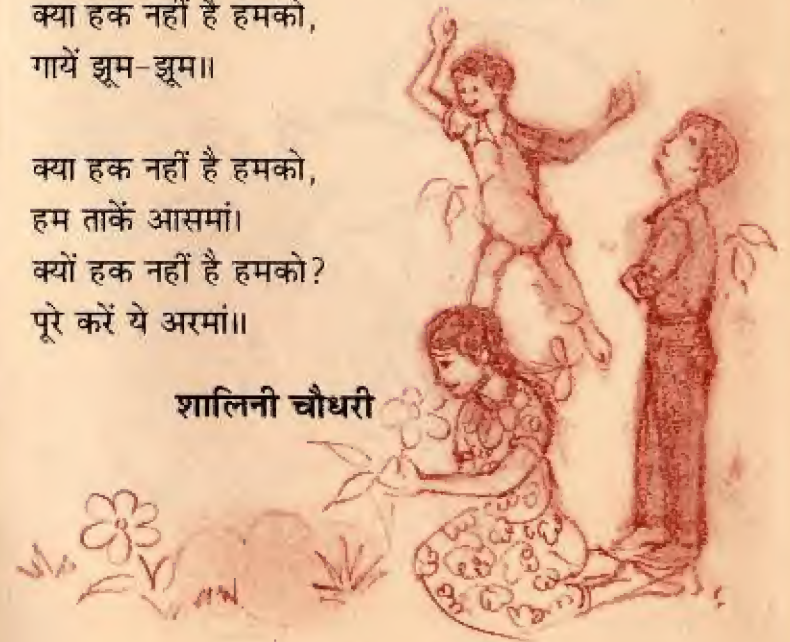 क्या हक नहीं है हमको,
गायें झूम-झूम॥
क्या हक नहीं है हमको,
हम ताकें आसमां।
क्यों हक नहीं है हमको?
पूरे करें ये अरमां॥
शालिनी चौधरी